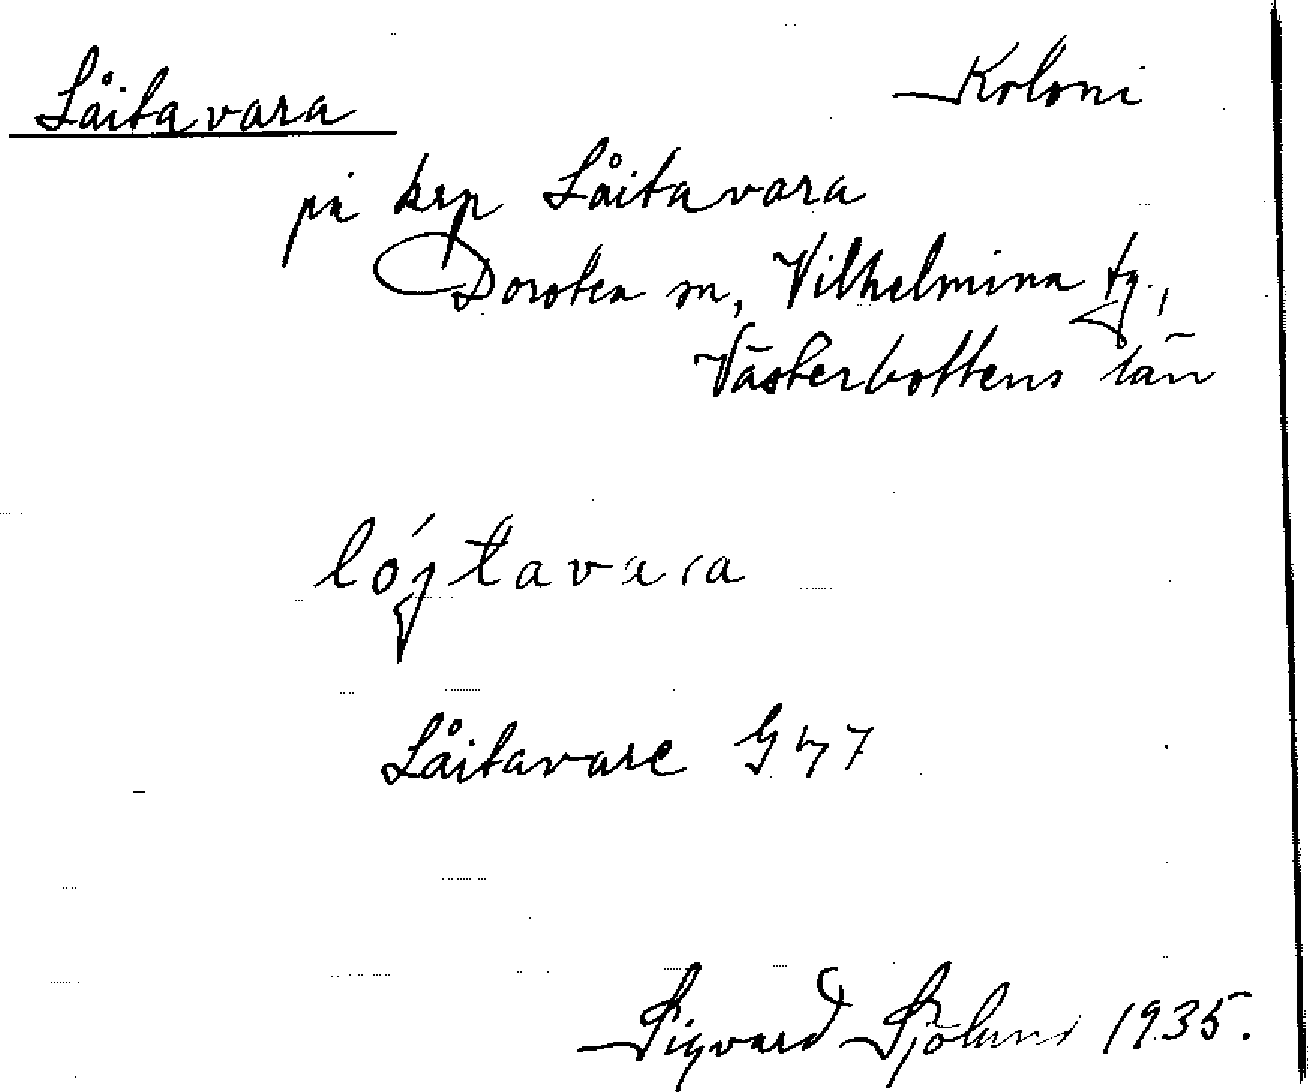 Låitavara Koloni
på krp Låitavara
Dorotea sn, Vilhelmina tg.,
Västerbottens län
lójtavara
Låitavare G 47
Sigvard Sjölund 1935.